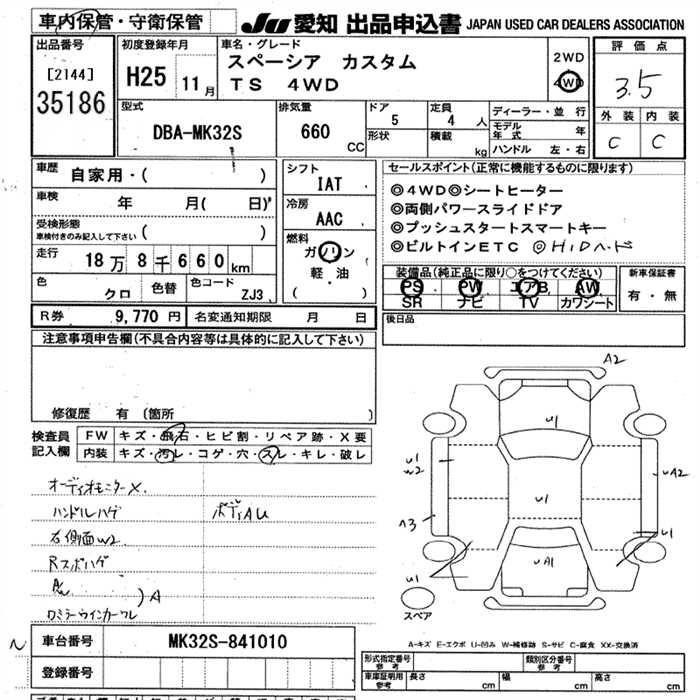 車内保管・守衛保管 JU 愛知 出品申込書 JAPAN USED CAR DEALERS ASSOCIATION
出品番号
[2144]
35186
初度登録年月
H25 11月
車名・グレード
スペーシア カスタム
TS 4WD
2WD
4WD
評価点
3.5
外装 内装
C C
型式
DBA-MK32S
排気量
660 CC
ドア
5
形状
定員
4 人
積載
kg
ディーラー・並行
モデル年式 年
ハンドル 左・右
車歴
自家用・( )
車検
年 月( 日)
受検形態
車検付きのみ記入して下さい ( )
走行
18万8千660km
色
クロ
色替
色コード
ZJ3
シフト
IAT
冷房
AAC
燃料
ガソリン
軽・油
( )
セールスポイント(正常に機能するものに限ります)
◎4WD◎シートヒーター
◎両側パワースライドドア
◎プッシュスタートスマートキー
◎ビルトインETC ◎HIDヘッド
装備品(純正品に限り○をつけてください)
PS PW エアB AW
SR ナビ TV カワシート
新車保証書
有・無
R券 9,770円 名変通知期限 月 日
後日品
注意事項申告欄(不具合内容等は具体的に記入して下さい)
修復歴 有 (箇所 )
検査員記入欄
FW キズ・飛石・ヒビ割・リペア跡・X要
内装 キズ・汚レ・コゲ・穴・スレ・キレ・破レ
オーディオモニターX.
ハンドルハゲ ボディAU
右側面W2
Rスポハゲ
A
ロミラーウインカーワレ
A2
U1
U1
W2
UA2
U1
A3
U1
UA1
U1
スペア
A-キズ E-エクボ U-凹み W-補修跡 S-サビ C-腐食 XX-交換済
車台番号 MK32S-841010
登録番号
型式指定番号 参考
類別区分番号 参考
車庫証明用 参考 長さ cm 幅 cm 高さ cm